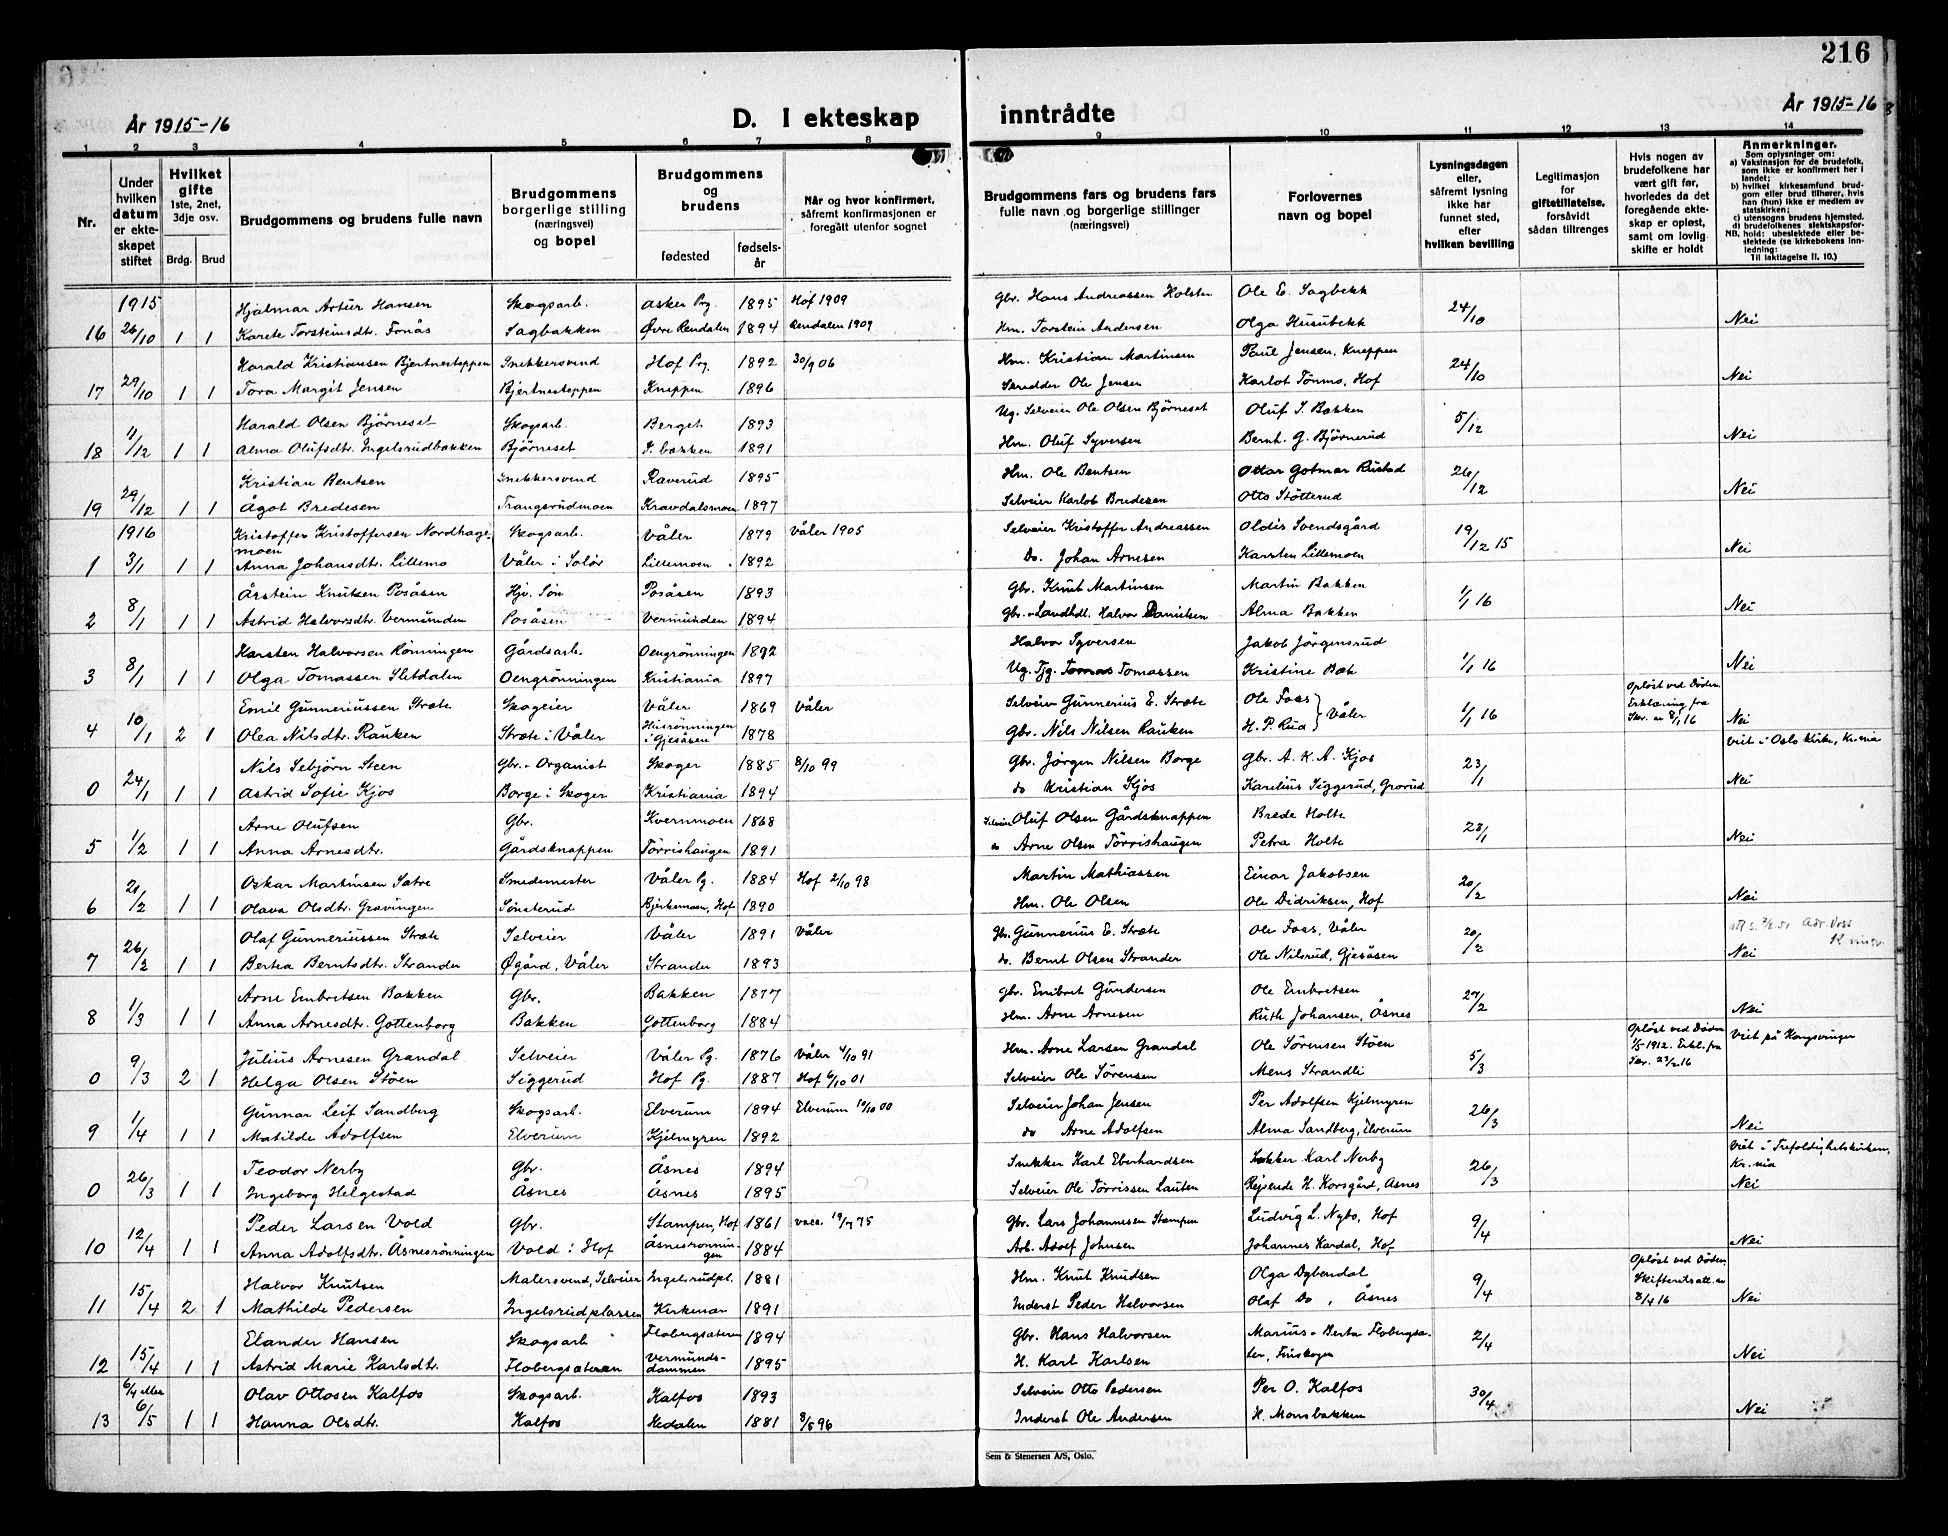 216
År 1915-16
D. I ekteskap inntrådte
År 1915-16
1 2 3 4 5 6 7 8 9 10 11 12 13 14
Nr.
Under hvilken datum er ekteskapet stiftet
Hvilket gifte 1ste, 2net, 3dje osv.
Brdg. Brud
Brudgommens og brudens fulle navn
Brudgommens borgerlige stilling (næringsvei) og bopel
Brudgommens og brudens
fødested
fødselsår
Når og hvor konfirmert, såfremt konfirmasjonen er foregått utenfor sognet
Brudgommens fars og brudens fars fulle navn og borgerlige stillinger (næringsvei)
Forlovernes navn og bopel
Lysningsdagen eller, såfremt lysning ikke har funnet sted, efter hvilken bevilling
Legitimasjon for giftetillatelse, forsåvidt sådan tiltrenges
Hvis nogen av brudefolkene har vært gift før, hvorledes da det foregående ekteskap er opløst, samt om lovlig skifte er holdt
Anmerkninger.
Som oplysninger om:
a) Vaksinasjon for de brudefolk, som ikke er konfirmert her i landet;
b) hvilket kirkesamfund brudgom eller brud tilhører, hvis han (hun) ikke er medlem av statskirken;
c) utensogns brudens hjemsted.
d) brudefolkenes slektskapsforhold: ubeslektede eller beslektede (se kirkebokens innledning:
NB.
Til iakttagelse II. 10.)
1915 Hjalmar Artur Hansen Skogsarb. Asker Pg. 1895 Hof 1909 Gbr. Hans Andreassen Holster Ole E. Sagbekk 24/10
16 26/10 1 1 Karete Torsteinsdt. Fonås Sagbakken Øvre Rendalen 1894 Rendalen 1909 Hm. Torstein Andersen Olga Husubekk Nei
Harald Kristiansen Bjertnestoppen Snekkersvend Hof Pg. 1892 30/9 06 Hm. Kristian Martinsen Paul Jensen, Kneppen 24/10
17 29/10 1 1 Tora Margit Jensen Bjertnestoppen Kneppen 1896 Skredder Ole Jensen Karlot Tönmo, Hof Nei
Harald Olsen Björneset Skogsarb. Berget 1893 Ug. Selveier Ole Olsen Björneset Oluf S. Bakken 5/12
18 11/12 1 1 Alma Olufsdtr. Ingelsrudbakken Björneset I. bakken 1891 Hm. Oluf Syversen Bernt G. Björnerud Nei
Kristian Bentsen Snekkersvend Raverud 1895 Hm. Ole Bentsen Ottar Gotmar Rustad 26/12
19 29/12 1 1 Ågot Bredesen Trangsrudmoen Kravdalsmoen 1897 Selveier Karlot Bredesen Otto Stötterud Nei
1916 Kristoffer Kristoffersen Nordhagemoen Skogsarb. Våler 1879 Våler 1905 Selveier Kristoffer Andreassen Oldis Svendsgård 19/12 15
1 3/1 1 1 Anna Johansdtr. Lillemo Våler i Solör Lillemoen 1892 Do. Johan Arnesen Karsten Lillemoen Nei
Årstein Knutsen Posåsen Hjv. Sön Posåsen 1893 Gbr. Knut Martinsen Martin Bakken 1/1 16
2 8/1 1 1 Astrid Halvorsdtr. Vermunden Posåsen Vermunden 1894 Gbr. - Landhdl. Halvor Danielsen Alma Bakken Nei
Karsten Halvorsen Rönningen Gårdsarb. Oengrönningen 1892 Halvor Syversen Jakob Jörgensrud
3 8/1 1 1 Olga Tomassen Sletdalen Oengrönningen Kristiania 1897 Ug. Tjg. Tomas Tomassen Kristine Bæk 1/1 16 Nei
Emil Gunneriussen Stræte Skogeier Våler 1869 Våler Selveier Gunnerius E. Stræte Ole Foss Våler 1/1 16 Opløst ved Döden. Erklæring fra Skr. av 8/1 16
4 10/1 2 1 Olea Nilsdtr. Rauken Stræte i Våler Husrönningen i Gjesåsen 1878 Gbr. Nils Nilsen Rauken H. P. Rud Nei
Nils Sebjörn Steen Gbr. - Organist Skoger 1885 8/10 99 Gbr. Jörgen Nilsen Borge Gbr. A. K. A. Kjos 23/1 Viet i Oslo Kirke, Kr.nia
0 24/1 1 1 Astrid Sofie Kjos Borge i Skoger Kristiania 1894 do Kristian Kjos Karelius Siggerud, Grorud Nei
Arne Olufsen Gbr. Kvernmoen 1868 Selveier Oluf Olsen Gårdsknappen Brede Holte 23/1
5 1/2 1 1 Anna Arnesdtr. Gårdsknappen Törrishaugen 1891 do Arne Olsen Törrishaugen Petra Holte Nei
Oskar Martinsen Sætre Smedemester Våler Pg. 1884 Hof 2/10 98 Martin Mathiassen Einar Jakobsen 20/2
6 21/2 1 1 Olava Olsdtr. Gravingen Sönsterud Bjirkemoen, Hof 1890 Hm. Ole Olsen Ole Didriksen, Hof Nei
Olaf Gunneriussen Stræte Selveier Våler 1891 Våler Gbr. Gunnerius E. Stræte Ole Foss, Våler 20/2
7 26/2 1 1 Bertea Berntsdtr. Strander Øgård, Våler Strander 1893 do. Bernt Olsen Strander Ole Nilsrud, Gjesåsen Nei
Arne Embretsen Bakken Gbr. Bakken 1877 Gbr. Embret Gundersen Ole Embretsen 27/2
8 1/3 1 1 Anna Arnesdtr. Gottenborg Bakken Gottenborg 1884 Hm. Arne Arnesen Ruth Johansen, Åsnes Nei
Julius Arnesen Grandal Selveier Våler Pg. 1876 Våler 4/10 91 Hm. Arne Larsen Grandal Ole Sörensen Stöen 5/3 Opløst ved Döden 1/5-1912. Erkl. fra Sor. 23/2 16 Viet på Kongsvinger
0 9/3 2 1 Helga Olsen Stöen Siggerud Hof Pg. 1887 Hof 6/10 01 Selveier Ole Sörensen Mens Strandli
Gunnar Leif Sandberg Skogsarb. Elverum 1894 Elverum 10/10 00 Selveier Johan Jensen Per Adolfsen Kjelmyren 26/3
9 1/4 1 1 Matilde Adolfsen Elverum Kjelmyren 1892 do Arne Adolfsen Alma Sandberg, Elverum Nei
Teodor Nerby Gbr. Åsnes 1894 Snekker Karl Eberhardsen Karl Nerby 26/3 Viet i Trefoldighetskirken, Kr.nia
0 26/3 1 1 Ingeborg Helgestad Åsnes Åsnes 1895 Selveier Ole Törrissen Lauten Rejsende H. Korsgård, Åsnes Nei
Peder Larsen Vold Gbr. Stampen, Hof 1861 vacc. 19/7 75 Gbr. Lars Johannesen Stampen Ludvig L. Nybo, Hof 9/4
10 12/4 1 1 Anna Adolfsdtr. Åsnesrönningen Vold i Hof Åsnesrönningen 1884 Arb. Adolf Johnsen Johannes Kardal, Hof Nei
Halvor Knutsen Malersvend, Selveier Ingelsrudpl. 1881 Hm. Knut Knudsen Olga Dybendal 9/4 Opløst ved Döden, Skifteritsatt. av 8/4 16
11 15/4 2 1 Mathilde Pedersen Ingelsrudplassen Kirkmar 1891 Inderst Peder Halvorsen Olaf Do, Åsnes Nei
Elander Hansen Skogsarb Flobergsæteren 1894 Gbr. Hans Halvorsen Marius - Berta Flobergsæter, Finskogen 2/4
12 15/4 1 1 Astrid Marie Karlsdtr. Flobergsæteren Vermundsdammen 1895 H. Karl Karlsen Nei
6/4 eller Olav Ottosen Kalfos Skogsarb. Kalfos 1893 Selveier Otto Pedersen Per O. Kalfos 30/4
13 6/5 1 1 Hanna Olsdtr. Kalfos Hedalen 1881 3/5 96 Inderst Ole Andersen H. Monsbakken Nei
Sem & Stenersen A/S, Oslo.